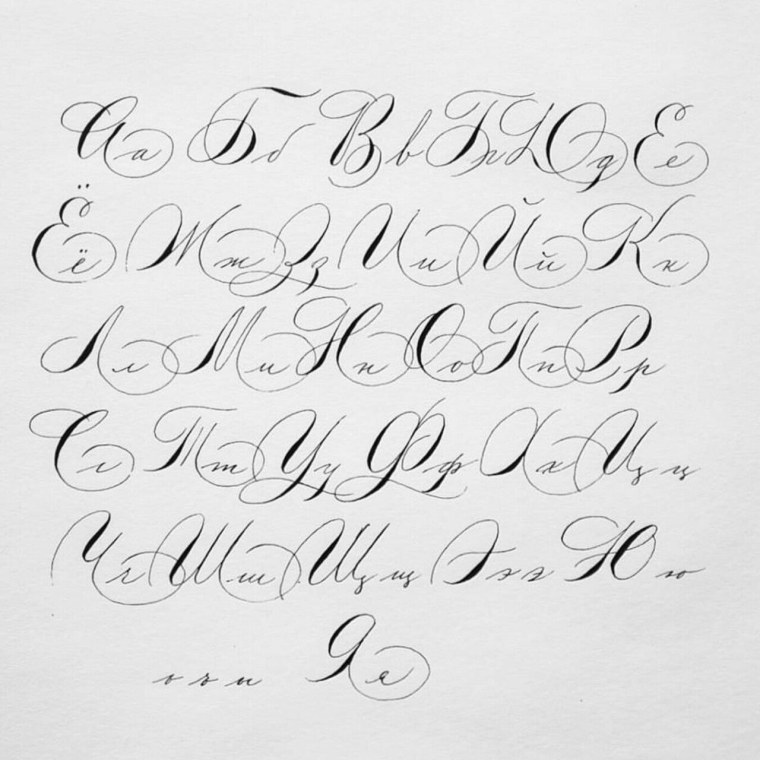 Аа Бб Вв Гг Дд Ее
Ёё Жж Зз Ии Йй Кк
Лл Мм Нн Оо Пп Рр
Сс Тт Уу Фф Хх Цц
Чч Шш Щщ Ээ Юю
ь ъ ы Яя